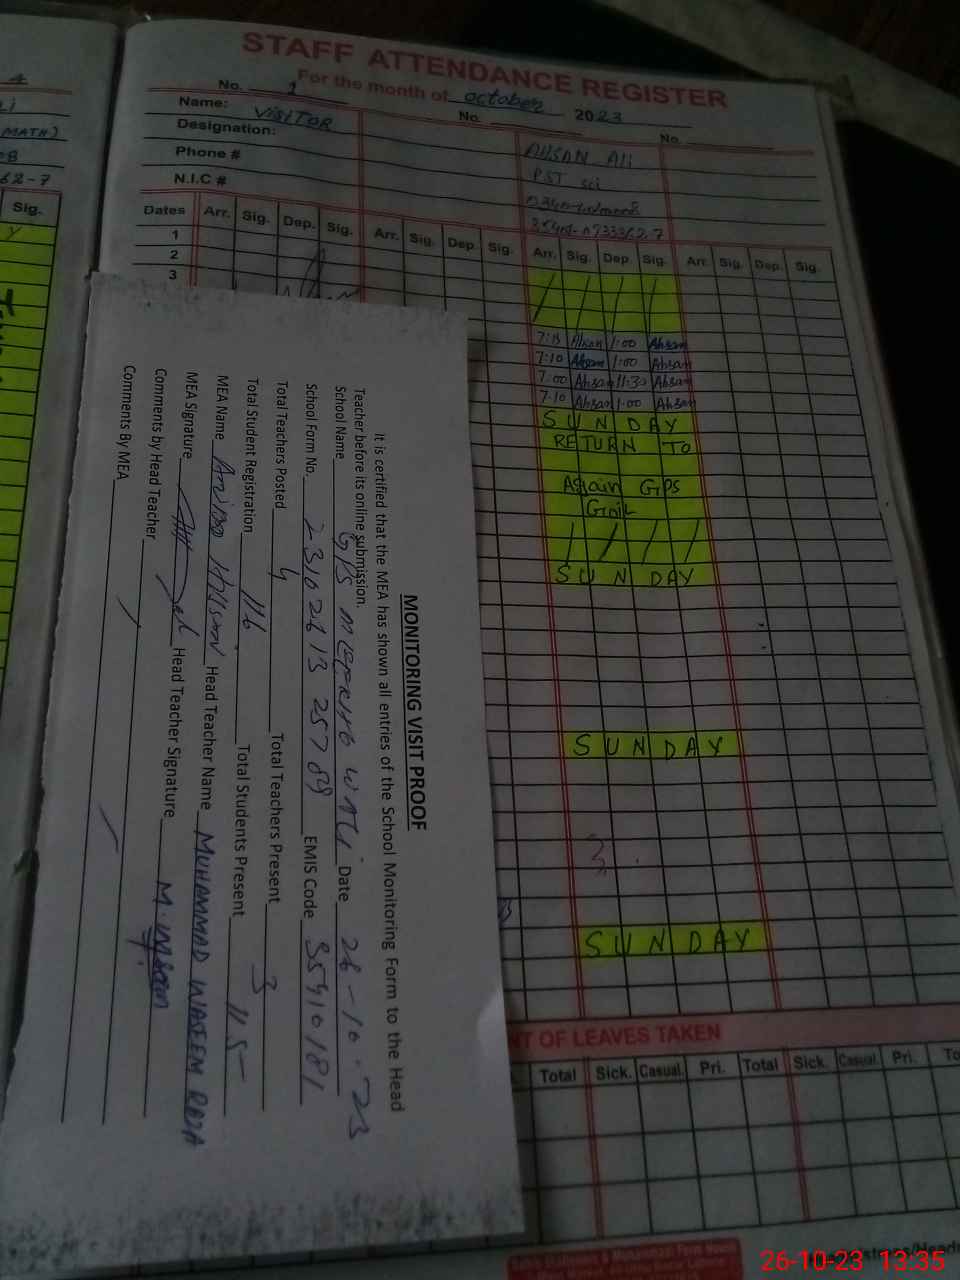 STAFF ATTENDANCE REGISTER
For the month of October 2023
No. 1 No. No.
Name: VISITOR AHSAN Ali
Designation: PST sci
Phone #
N.I.C #
Dates Arr. Sig. Dep. Sig. Arr. Sig. Dep. Sig. Arr. Sig. Dep. Sig. Arr. Sig. Dep. Sig.
1
2
3
7:15 Ahsan 1:00 Ahsan
7:10 Ahsan 1:00 Ahsan
7:00 Ahsan 11:30 Ahsan
7:10 Ahsan 1:00 Ahsan
SUNDAY
RETURN TO
Again GPS
SUNDAY
SUNDAY
SUNDAY
OF LEAVES TAKEN
Total Sick. Casual. Pri. Total Sick. Casual. Pri. To
4
MATH)
62-7
Sig.
MONITORING VISIT PROOF
It is certified that the MEA has shown all entries of the School Monitoring Form to the Head
Teacher before its online submission.
School Name GPS Date 26-10-23
School Form No. EMIS Code 35910181
Total Teachers Posted 4 Total Teachers Present 3
Total Student Registration 116 Total Students Present 115
MEA Name Head Teacher Name MUHAMMAD WASEEM RAZA
MEA Signature Head Teacher Signature
Comments by Head Teacher
Comments By MEA
26-10-23 13:35